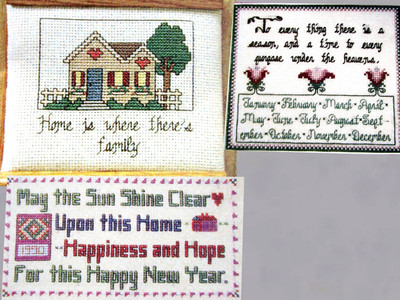 Home is where there's
family
To every thing there is a
season, and a time to every
purpose under the heavens.
January February March April
May June July August Sept-
ember October November December
May the Sun Shine Clear
Upon this Home
1990
Happiness and Hope
For this Happy New Year.